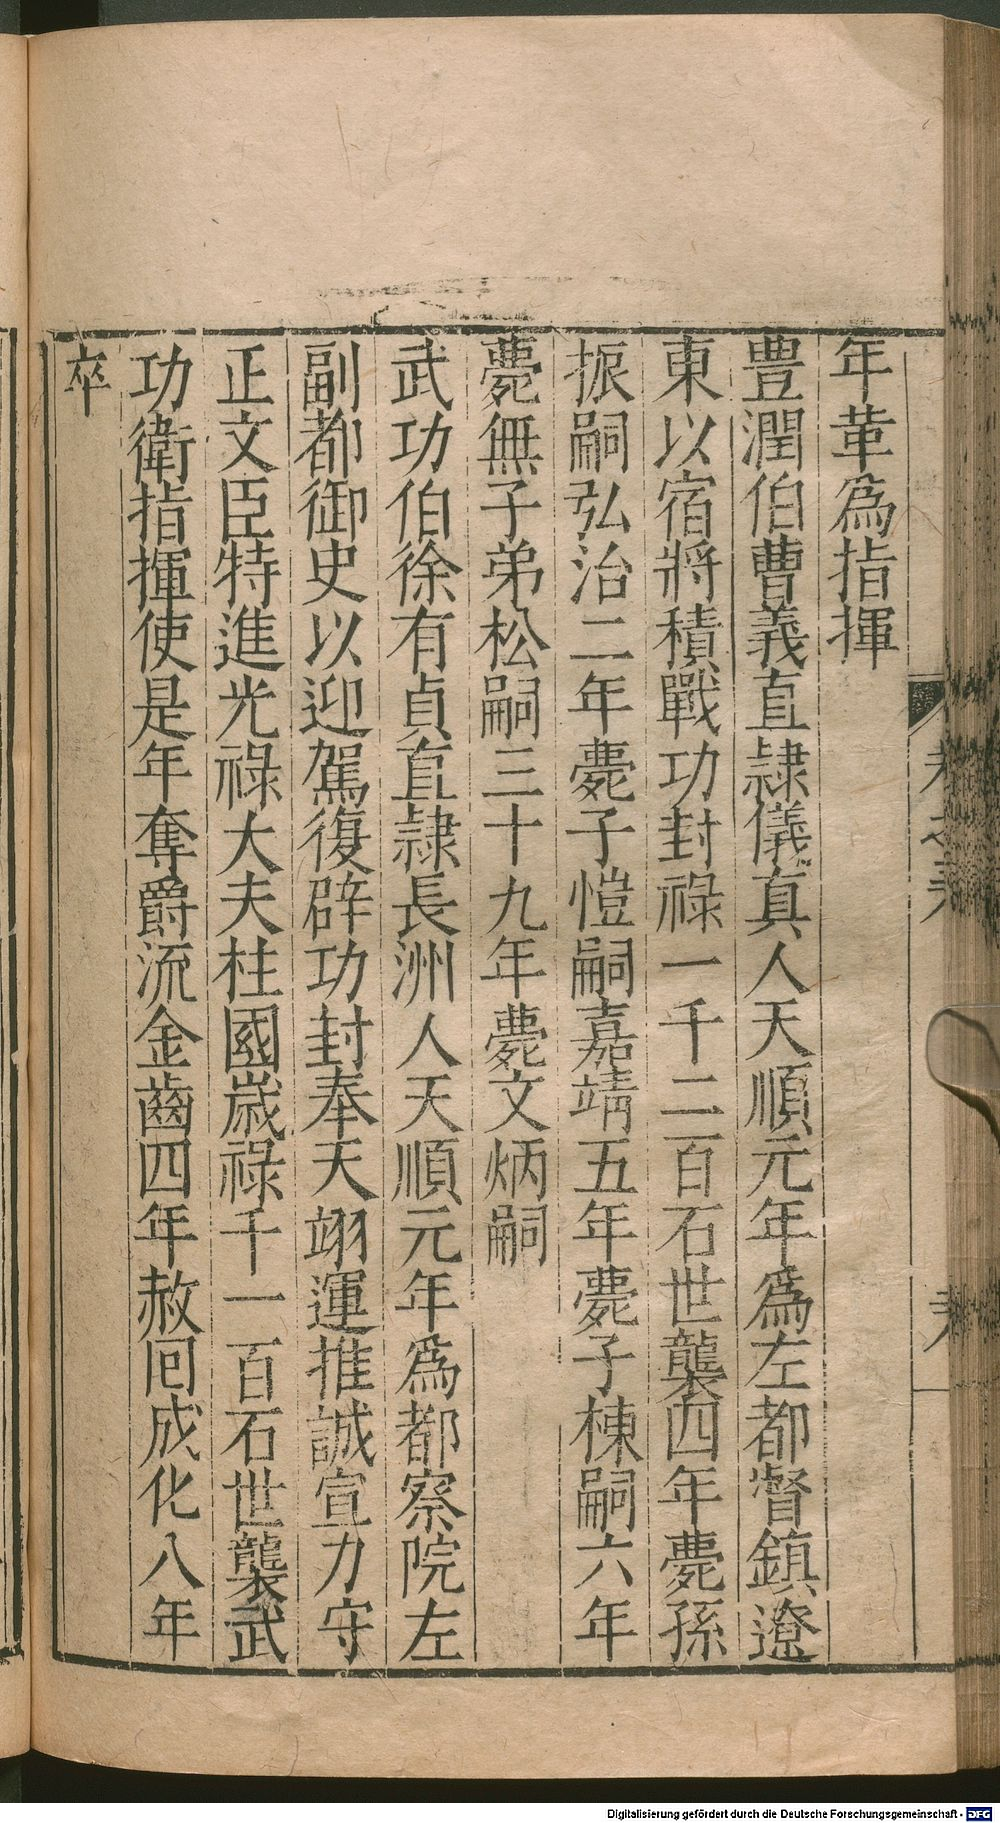 年革為指揮
豊潤伯曹義直隷儀真人天順元年為左都督鎮遼
東以宿將積戰功封祿一千二百石世襲四年薨孫
振嗣弘治二年薨子愷嗣嘉靖五年薨子棟嗣六年
薨無子弟松嗣三十九年薨文炳嗣
武功伯徐有貞直隷長洲人天順元年為都察院左
副都御史以迎駕復辟功封奉天翊運推誠宣力守
正文臣特進光祿大夫柱國歲祿千一百石世襲武
功衛指揮使是年奪爵流金齒四年赦回成化八年
卒
Digitalisierung gefördert durch die Deutsche Forschungsgemeinschaft - DFG